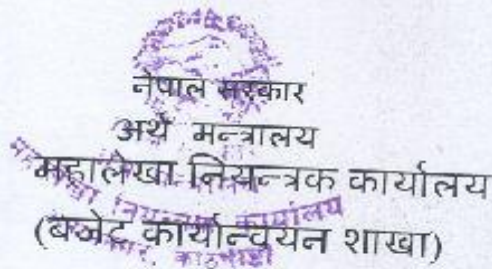 नेपाल सरकार
अर्थ मन्त्रालय
महालेखा नियन्त्रक कार्यालय
(बजेट कार्यान्वयन शाखा)